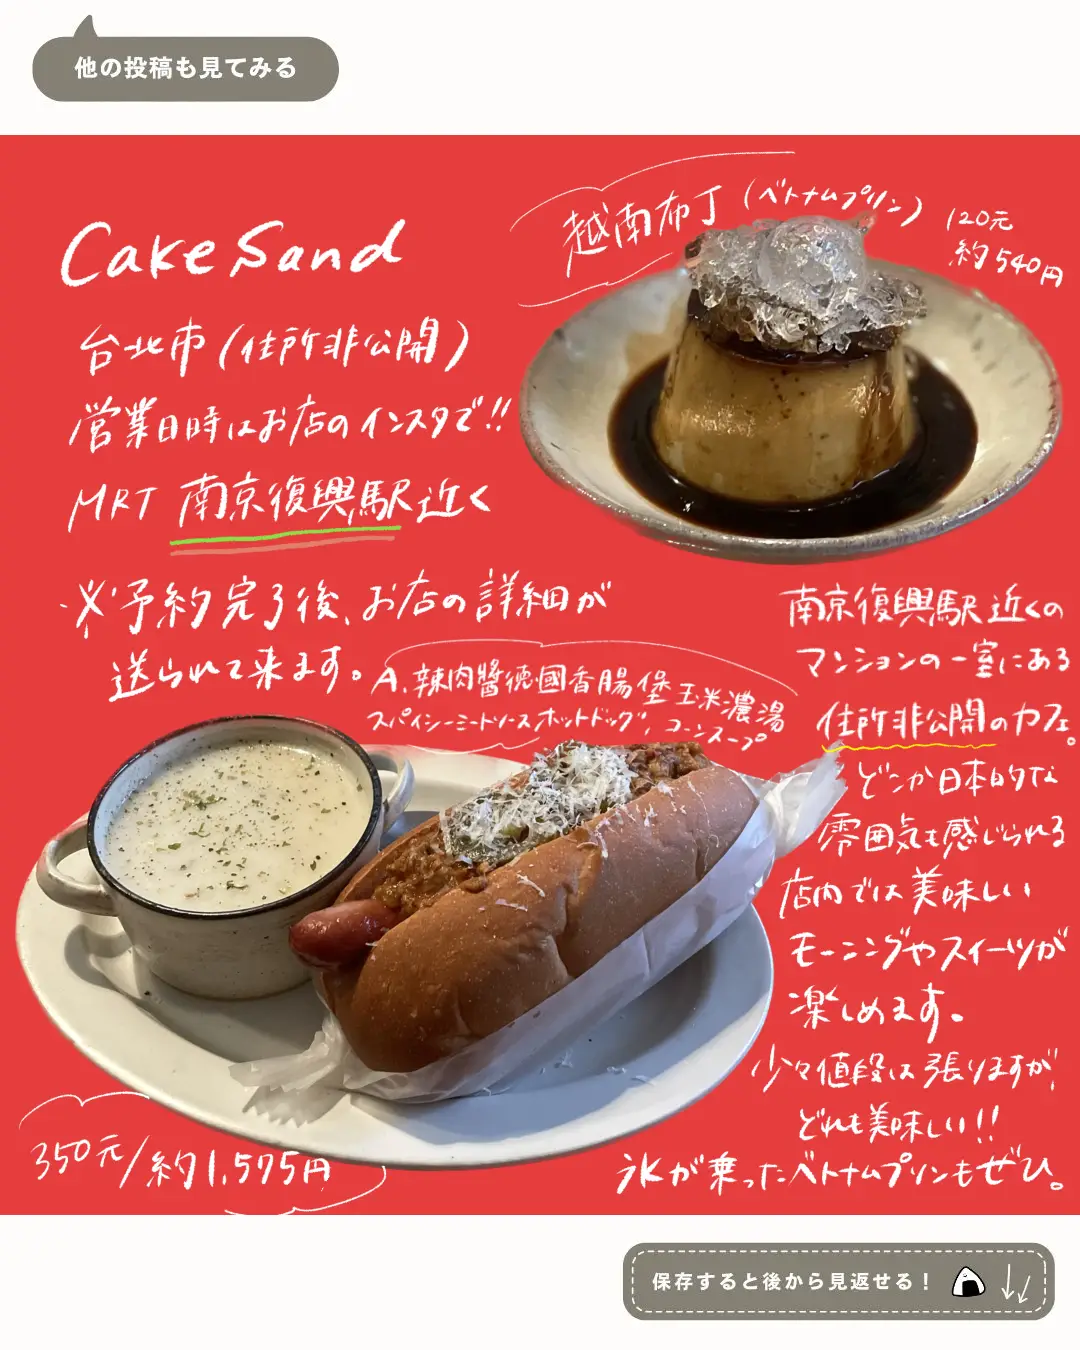 他の投稿も見てみる
Cake Sand
台北市(住所非公開)
営業日時はお店のインスタで!!
MRT 南京復興駅近く
※予約完了後、お店の詳細が
送られて来ます。
越南布丁(ベトナムプリン)
120元
約540円
A.辣肉醬德國香腸堡玉米濃湯
スパイシーミートソースホットドッグ、コーンスープ
350元/約1,575円
南京復興駅近くの
マンションの一室にある
住所非公開のカフェ。
どこか日本的な
雰囲気も感じられる
店内では美味しい
モーニングやスイーツが
楽しめます。
少々値段は張りますが、
どれも美味しい!!
氷が乗ったベトナムプリンもぜひ。
保存すると後から見返せる!